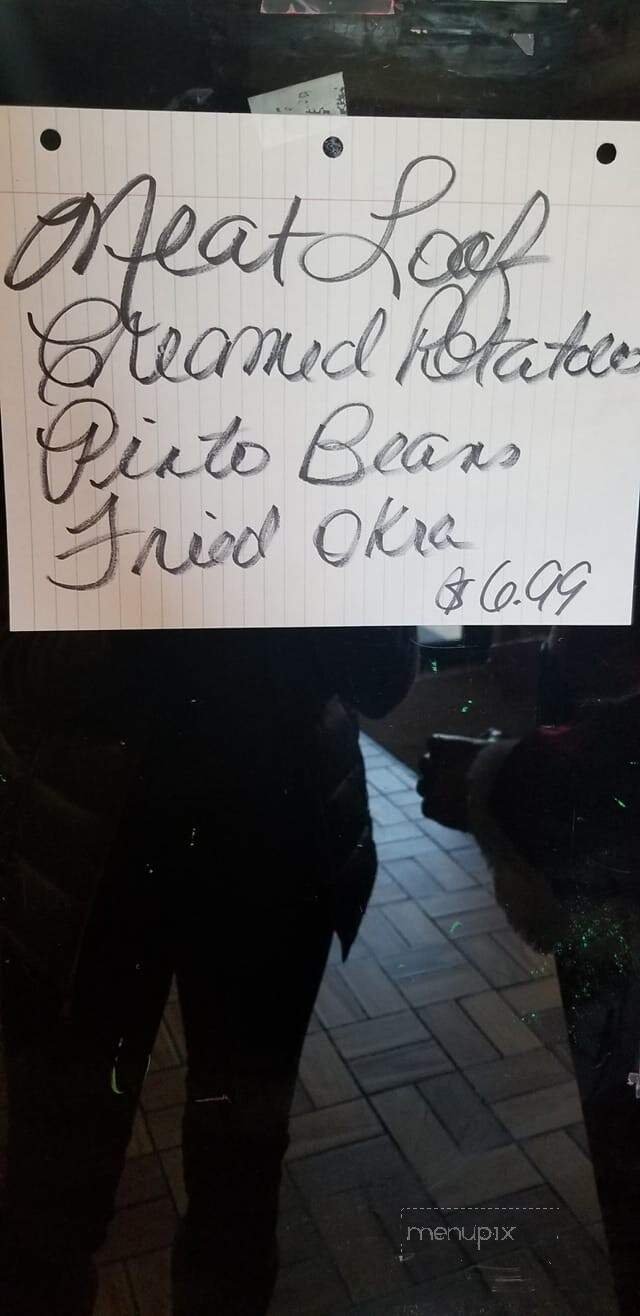 Meat Loaf
Creamed Potatoes
Pinto Beans
Fried Okra
$6.99
menupix